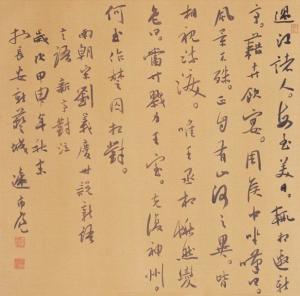 過江諸人。每至美日。輒相邀新
亭。藉卉飲宴。周侯中坐嘆曰
風景不殊。正自有山河之異。皆
相視流淚。唯王丞相愀然變
色曰。當共戮力王室。克復神州。
何至作楚囚相對。
南朝宋劉義慶世說新語
之語新亭對泣
歲次甲申年秋末
於長安新藝城